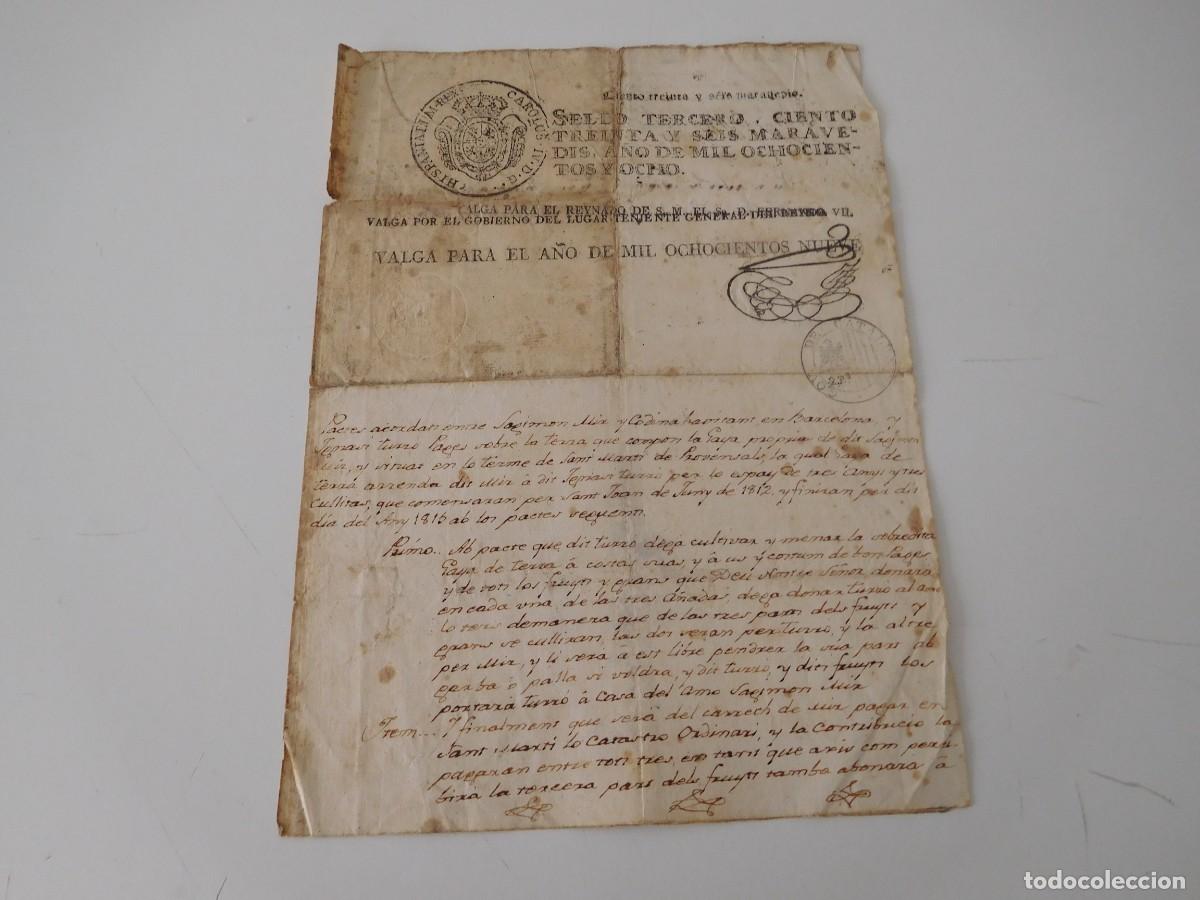 Ciento treinta y seis maravedis.
HISPANIARUM REX CAROLUS IV D. G.
SELLO TERCERO, CIENTO
TREINTA Y SEIS MARAVE-
DIS, AÑO DE MIL OCHOCIEN-
TOS Y OCHO.
VALGA PARA EL REYNADO DE S. M. EL SR. D. FERNANDO VII.
VALGA POR EL GOBIERNO DEL LUGAR TENIENTE GENERAL DEL REYNO
VALGA PARA EL AÑO DE MIL OCHOCIENTOS NUEVE
Pactes acordats entre Sagimon Mir y Codina havitant en Barcelona, y
Ignasi turró Pages sobre la terra que compon la Pasa propria de dit Sagimon
Mir, y situat en lo terme de Sant Marti de Provensals, la qual Pasa de
terra arrenda dit Mir á dit Ignasi turró per lo espay de tres Anys y tres
Cullitas, que comensaran per Sant Joan de Juny de 1812, y finiran per dit
dia del Any 1815 ab los pactes seguents.
Primo... Ab pacte que dit turró dega cultivar y menar la sobredita
Pasa de terra á costas suas, y á us y costum de bon Pages
y de tots los fruyts y grans que Deu Nostre Señor donará
en cada una de las tres Añadas, dega donar turró al amo
lo ters demanera que de las tres parts dels fruyts y
grans se culliran, las dos seran per turró, y la altre
per Mir, y li será á est libre pendrer la sua part ab
garba ó palla si voldra, y dit turró, y dits fruyts los
portará turró á Casa del Amo Sagimon Mir
Item... Y finalment que será del carrech de Mir pagar en
Sant Marti lo Catastro Ordinari, y la Contribucio la
pagaran entre tots tres, en tant que axis com perci-
birá la tercera part dels fruyts tambe abonará á
todocoleccion